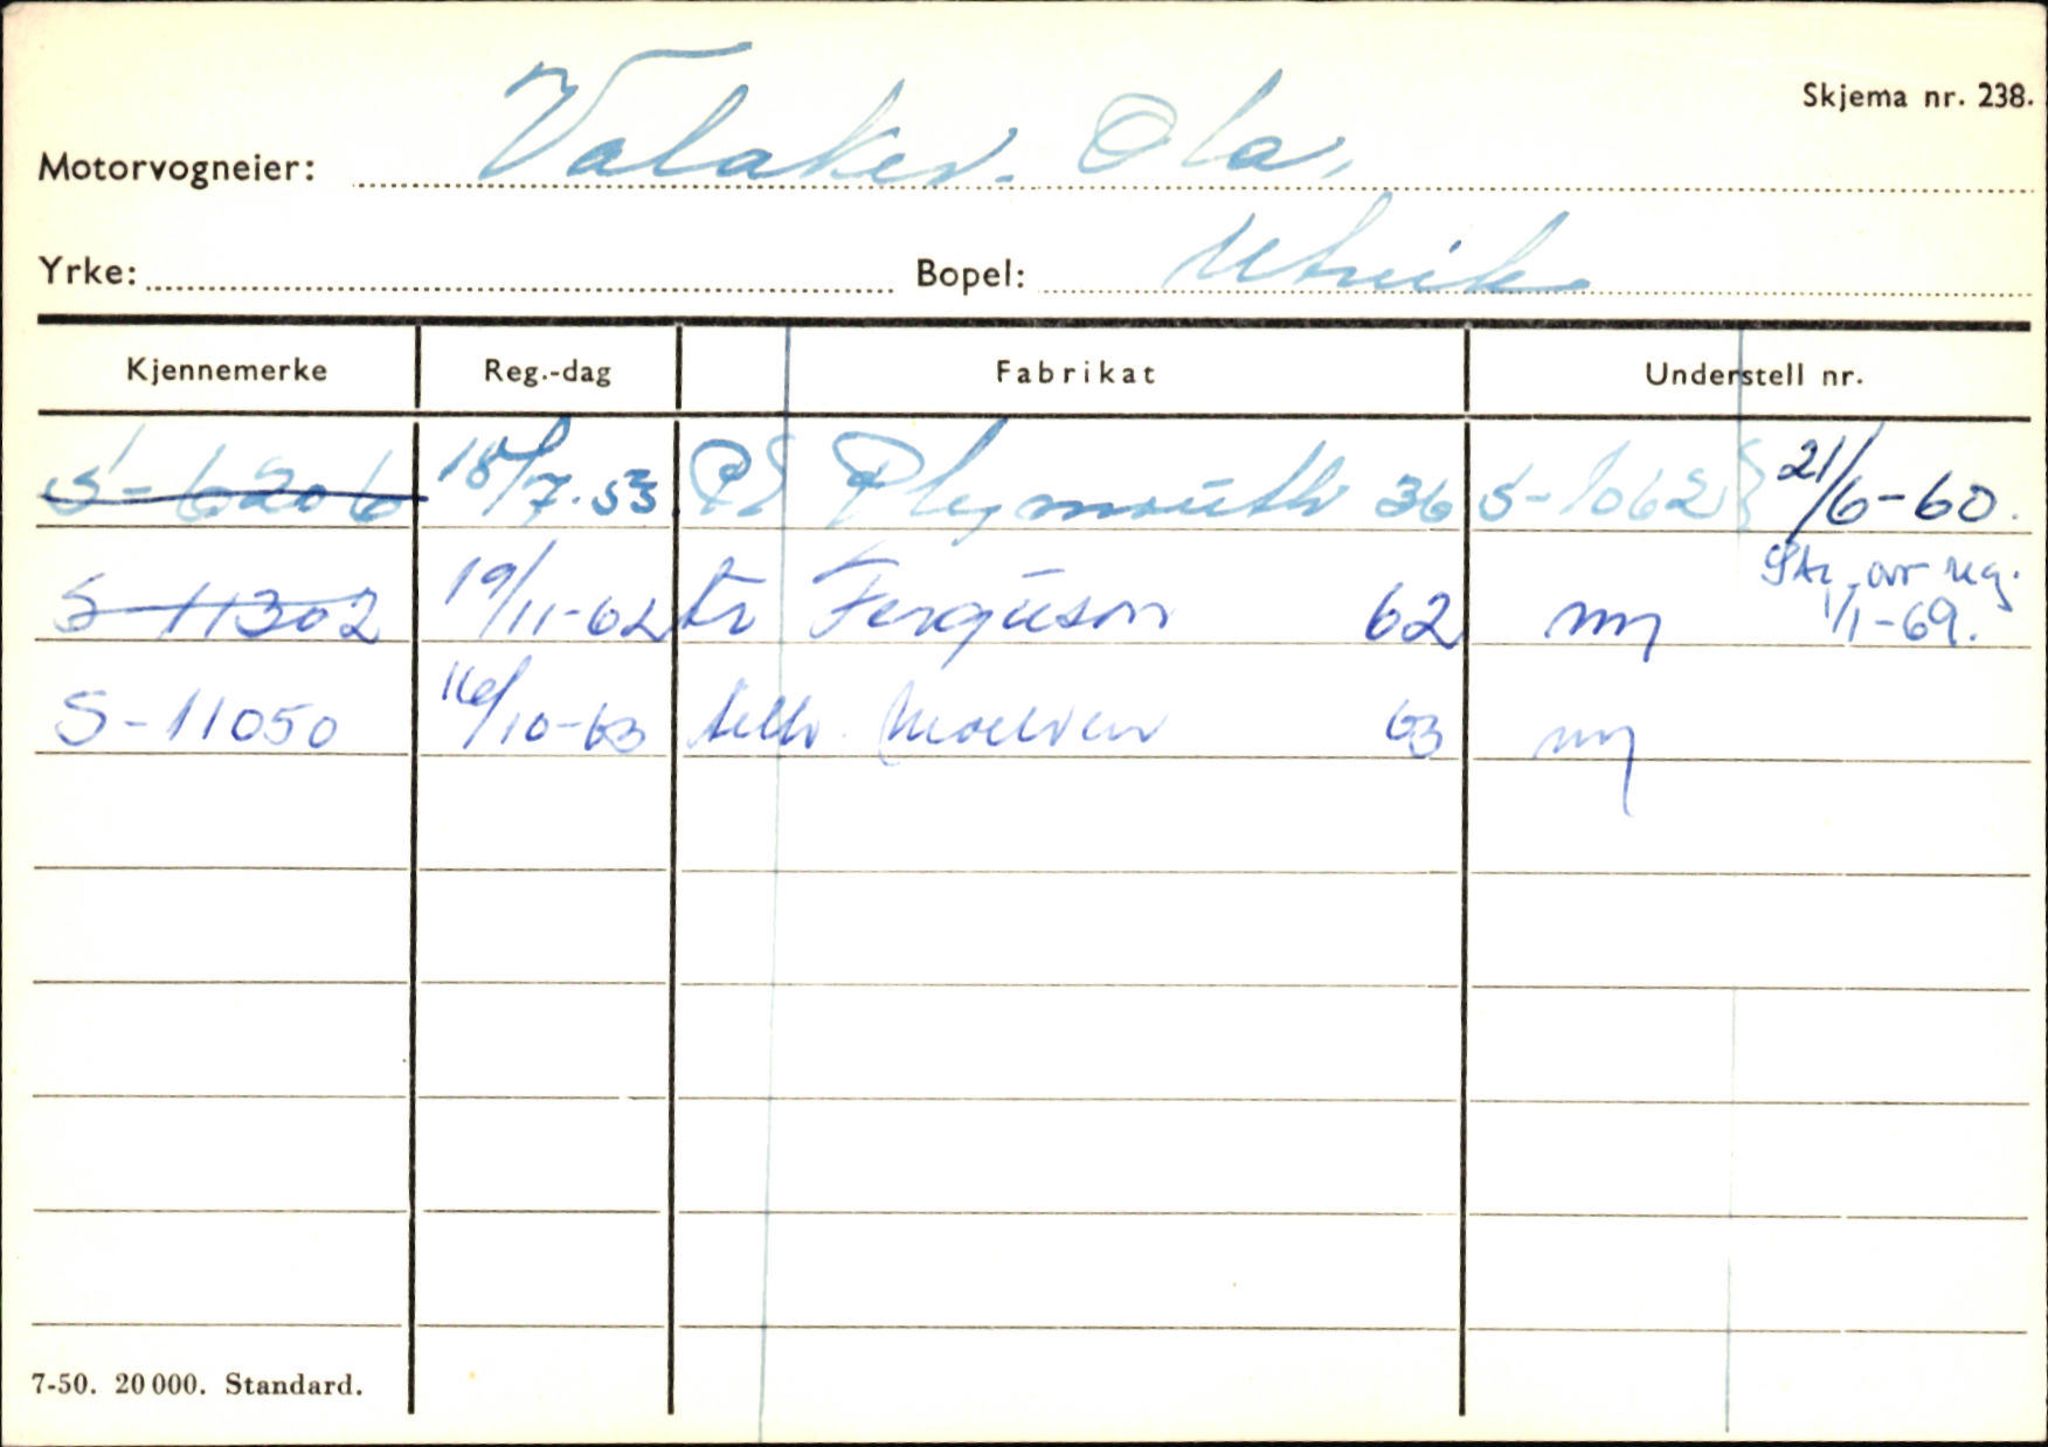 Skjema nr. 238.
Motorvogneier: Valaker. Ola,
Yrke: Bopel: Utvik
Kjennemerke Reg.-dag Fabrikat Understell nr.
S-6206 18/7.53 PE Plymouth 36 S-1062 21/6-60.
Str. avr reg.
S-11302 19/11-62 tr Ferguson 62 ny 1/1-69.
S-11050 16/10-63 Moelven 63 ny
7-50. 20 000. Standard.